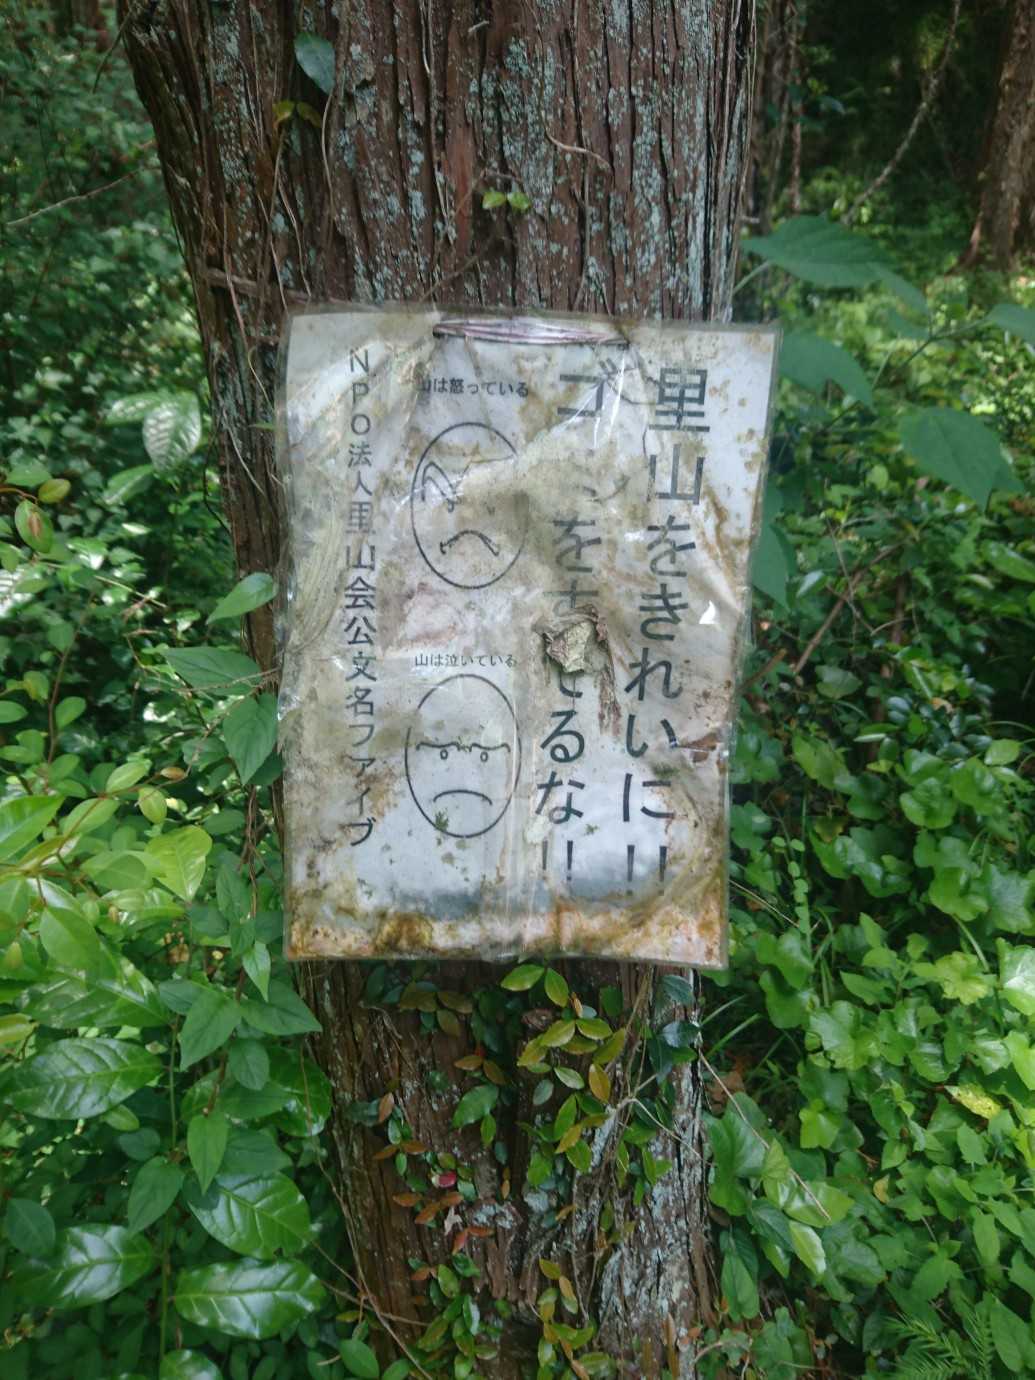 里山をきれいに!!
ゴミをすてるな!!
山は怒っている
山は泣いている
NPO法人里山会公文名ファイブ